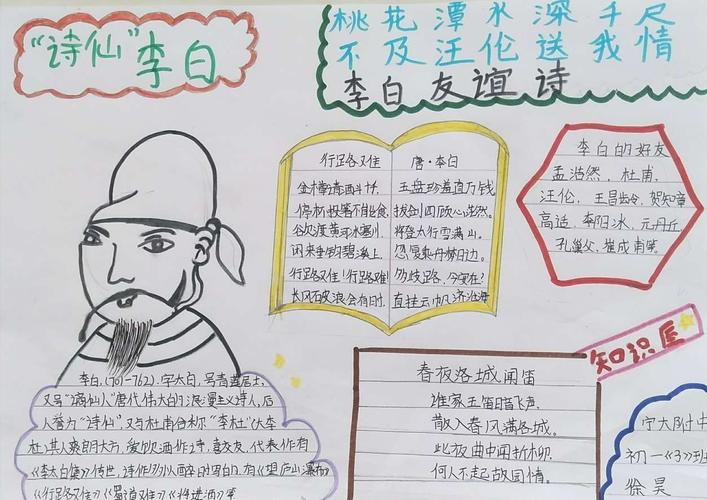 “诗仙”李白
桃花潭水深千尺
不及汪伦送我情
李白友谊诗
行路难
唐·李白
金樽清酒斗十千
玉盘珍羞直万钱
停杯投箸不能食
拔剑四顾心茫然。
欲渡黄河冰塞川
将登太行雪满山。
闲来垂钓碧溪上
忽复乘舟梦日边。
行路难！行路难！
多歧路，今安在？
长风破浪会有时
直挂云帆济沧海
李白的好友
孟浩然，杜甫，
汪伦，王昌龄，贺知章
高适，李阳冰，元丹丘
孔巢父，崔成甫等。
知识屋
春夜洛城闻笛
谁家玉笛暗飞声，
散入春风满洛城。
此夜曲中闻折柳
何人不起故园情。
李白，(701-762)，字太白，号青莲居士，
又号“谪仙人”唐代伟大的浪漫主义诗人，后
人誉为“诗仙”，又与杜甫合称“李杜”
其人爽朗大方，爱饮酒作诗，喜交友，代表作有
《李太白集》传世，诗作多以醉时写的，有《望庐山瀑布》
《行路难》《蜀道难》《将进酒》等
宁大附中
初一《3》班
徐昊